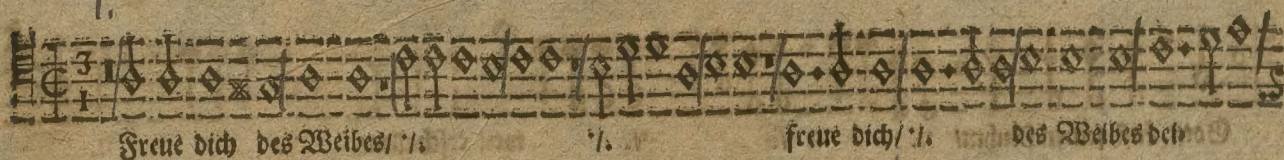 3
1
Freue dich des Weibes/ :/: :/: freue dich/ :/: des Weibes dein